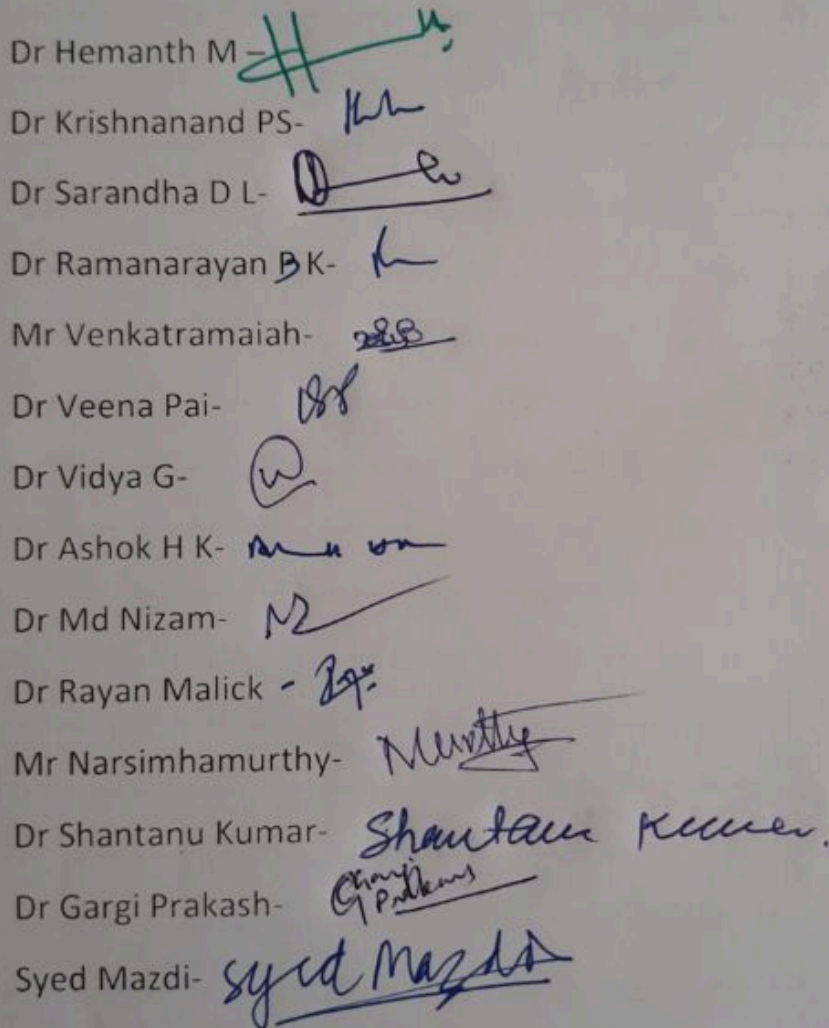 Dr Hemanth M -
Dr Krishnanand PS-
Dr Sarandha D L-
Dr Ramanarayan B K-
Mr Venkatramaiah-
Dr Veena Pai-
Dr Vidya G-
Dr Ashok H K-
Dr Md Nizam-
Dr Rayan Malick -
Mr Narsimhamurthy- Murthy
Dr Shantanu Kumar- Shantanu Kumar.
Dr Gargi Prakash-
Syed Mazdi- Syed Mazdi